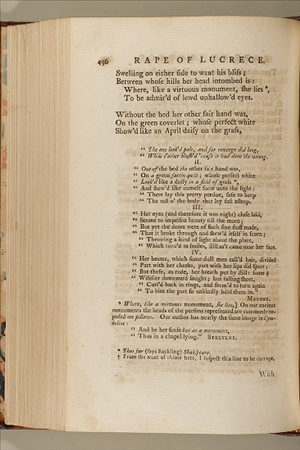 496 RAPE OF LUCRECE.
Swelling on either side to want his bliss;
Between whose hills her head intombed is:
Where, like a virtuous monument, she lies *,
To be admir'd of lewd unhallow'd eyes.
Without the bed her other fair hand was,
On the green coverlet; whose perfect white
Show'd like an April daisy on the grass,
" The one look'd pale, and for revenge did long,
" While t'other blush'd 'cause it had done the wrong.
II.
" Out of the bed the other fair hand was,
" On a green sattin quilt; whose perfect white
" Look'd like a daisy in a field of grass †,
" And shew'd like unmelt snow unto the sight:
" There lay this pretty perdue, safe to keep
" The rest o' the body that lay fast asleep.
III.
" Her eyes (and therefore it was night) close laid,
" Strove to imprison beauty till the morn;
" But yet the doors were of such fine stuff made,
" That it broke through and shew'd itself in scorn;
" Throwing a kind of light about the place,
" Which turn'd to smiles, still as't came near her face.
IV.
" Her beams, which some dull men call'd hair, divided
" Part with her cheeks, part with her lips did sport;
" But these, as rude, her breath put by still:
" Wiselier downward sought; but falling short,
" Curl'd back in rings, and seem'd to turn again
" To bite the part so unkindly held them in."
MALONE.
* Where, like a virtuous monument, she lies,] On our ancient
monuments the heads of the persons represented are commonly re-
posed on pillows. Our author has nearly the same image in Cym-
beline:
" And be her sense but as a monument,
" Thus in a chapel lying." STEEVENS.
* Thus far (says Suckling) Shakspeare.
† From the want of rhime here, I suspect this line to be corrupt.
With-